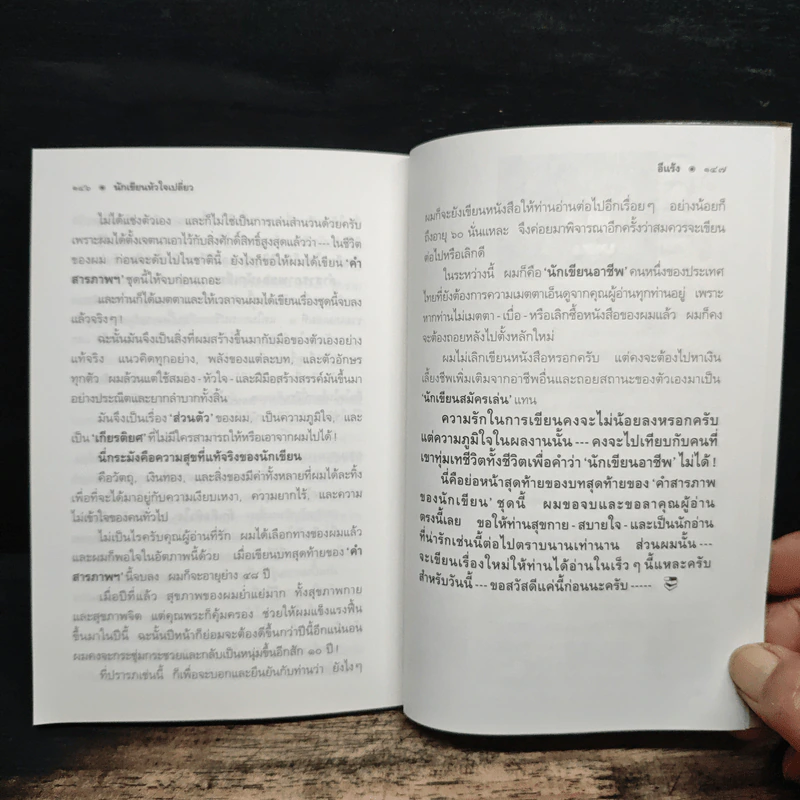 ๑๔๖ ๏ นักเขียนหัวใจเปลี่ยว
ไม่ได้แช่งตัวเอง และก็ไม่ใช่เป็นการเล่นสำนวนด้วยครับ
เพราะผมได้ตั้งเจตนาเอาไว้กับสิ่งศักดิ์สิทธิ์สูงสุดแล้วว่า---ในชีวิต
ของผม ก่อนจะดับไปในชาตินี้ ยังไงก็ขอให้ผมได้เขียน 'คำ
สารภาพฯ' ชุดนี้ให้จบก่อนเถอะ
และท่านก็ได้เมตตาและให้เวลาจนผมได้เขียนเรื่องชุดนี้จบลง
แล้วจริงๆ!
ฉะนั้นมันจึงเป็นสิ่งที่ผมสร้างขึ้นมากับมือของตัวเองอย่าง
แท้จริง แนวคิดทุกอย่าง, พลังของแต่ละบท, และตัวอักษร
ทุกตัว ผมล้วนแต่ใช้สมอง-หัวใจ-และฝีมือสร้างสรรค์มันขึ้นมา
อย่างประณีตและยากลำบากทั้งสิ้น
มันจึงเป็นเรื่อง 'ส่วนตัว' ของผม, เป็นความภูมิใจ, และ
เป็น 'เกียรติยศ' ที่ไม่มีใครสามารถให้หรือเอาจากผมไปได้!
นี่กระมังคือความสุขที่แท้จริงของนักเขียน
คือวัตถุ, เงินทอง, และสิ่งของมีค่าทั้งหลายที่ผมได้ละทิ้ง
เพื่อที่จะได้มาอยู่กับความเงียบเหงา, ความยากไร้, และความ
ไม่เข้าใจของคนทั่วไป
ไม่เป็นไรครับคุณผู้อ่านที่รัก ผมได้เลือกทางของผมแล้ว
และผมก็พอใจในอัตภาพนี้ด้วย เมื่อเขียนบทสุดท้ายของ 'คำ
สารภาพฯ' นี้จบลง ผมก็จะอายุย่าง ๔๘ ปี
เมื่อปีที่แล้ว สุขภาพของผมย่ำแย่มาก ทั้งสุขภาพกาย
และสุขภาพจิต แต่คุณพระก็คุ้มครอง ช่วยให้ผมแข็งแรงฟื้น
ขึ้นมาในปีนี้ ฉะนั้นปีหน้าก็ย่อมจะต้องดีขึ้นกว่าปีนี้อีกแน่นอน
ผมคงจะกระชุ่มกระชวยและกลับเป็นหนุ่มขึ้นอีกสัก ๑๐ ปี!
ที่ปรารภเช่นนี้ ก็เพื่อจะบอกและยืนยันกับท่านว่า ยังไงๆ
อีแร้ง ๏ ๑๔๗
ผมก็จะยังเขียนหนังสือให้ท่านอ่านต่อไปอีกเรื่อยๆ อย่างน้อยก็
ถึงอายุ ๖๐ นั่นแหละ จึงค่อยมาพิจารณาอีกครั้งว่าสมควรจะเขียน
ต่อไปหรือเลิกดี
ในระหว่างนี้ ผมก็คือ 'นักเขียนอาชีพ' คนหนึ่งของประเทศ
ไทยที่ยังต้องการความเมตตาเอ็นดูจากคุณผู้อ่านทุกท่านอยู่ เพราะ
หากท่านไม่เมตตา-เบื่อ-หรือเลิกซื้อหนังสือของผมแล้ว ผมก็คง
จะต้องถอยหลังไปตั้งหลักใหม่
ผมไม่เลิกเขียนหนังสือหรอกครับ แต่คงจะต้องไปหาเงิน
เลี้ยงชีพเพิ่มเติมจากอาชีพอื่นและถอยสถานะของตัวเองมาเป็น
'นักเขียนสมัครเล่น' แทน
ความรักในการเขียนคงจะไม่น้อยลงหรอกครับ
แต่ความภูมิใจในผลงานนั้น---คงจะไปเทียบกับคนที่
เขาทุ่มเทชีวิตทั้งชีวิตเพื่อคำว่า 'นักเขียนอาชีพ' ไม่ได้!
นี่คือย่อหน้าสุดท้ายของบทสุดท้ายของ 'คำสารภาพ
ของนักเขียน' ชุดนี้ ผมขอจบและขอลาคุณผู้อ่าน
ตรงนี้เลย ขอให้ท่านสุขกาย-สบายใจ-และเป็นนักอ่าน
ที่น่ารักเช่นนี้ต่อไปตราบนานเท่านาน ส่วนผมนั้น---
จะเขียนเรื่องใหม่ให้ท่านได้อ่านในเร็วๆนี้แหละครับ
สำหรับวันนี้---ขอสวัสดีแค่นี้ก่อนนะครับ-----